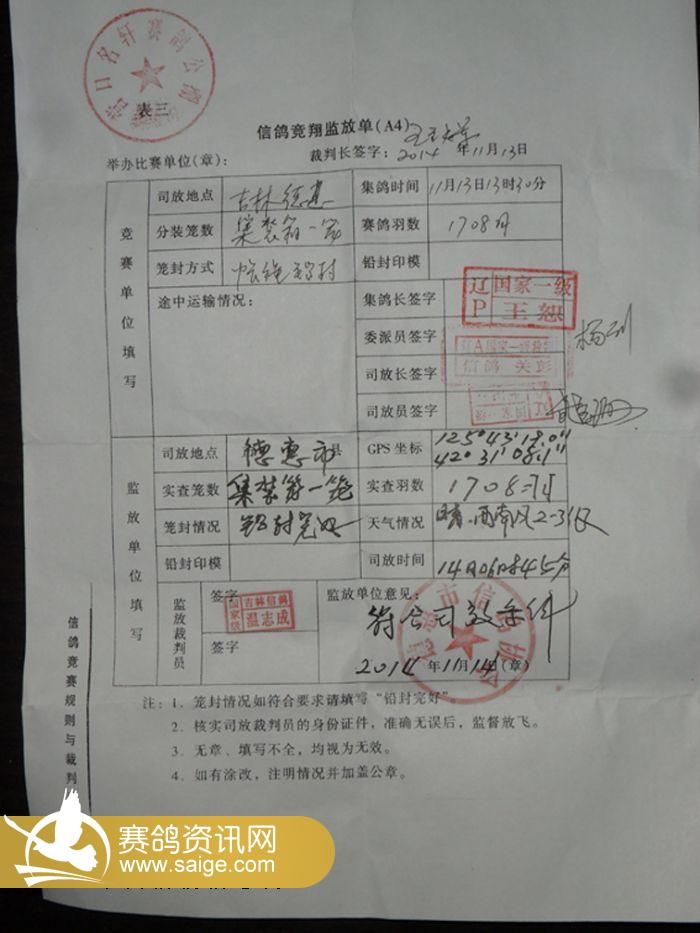 营口名轩赛鸽公棚
表三
信鸽竞翔监放单(A4)
举办比赛单位(章): 裁判长签字: 2014年11月13日
竞赛单位填写
司放地点 吉林德惠 集鸽时间 11月13日13时30分
分装笼数 集装箱一笼 赛鸽羽数 1708羽
笼封方式 铅封印模
途中运输情况: 集鸽长签字 辽P 国家一级 王恕
委派员签字
司放长签字 辽A国家一级裁判 信鸽 关彭
司放员签字
监放单位填写
司放地点 德惠市县 GPS坐标 125°43'19.0" 42°31'08.1"
实查笼数 集装箱一笼 实查羽数 1708羽
笼封情况 铅封完好 天气情况 晴.西南风2-3级
铅封印模 司放时间 14日06时45分
监放裁判员 签字 国家级 吉林信鸽 温志成 监放单位意见:
签字 符合司放条件
2014年11月14日(章)
注: 1. 笼封情况如符合要求请填写“铅封完好”
2. 核实司放裁判员的身份证件，准确无误后，监督放飞。
3. 无章、填写不全，均视为无效。
4. 如有涂改，注明情况并加盖公章。
信鸽竞赛规则与裁判
赛鸽资讯网
www.saige.com